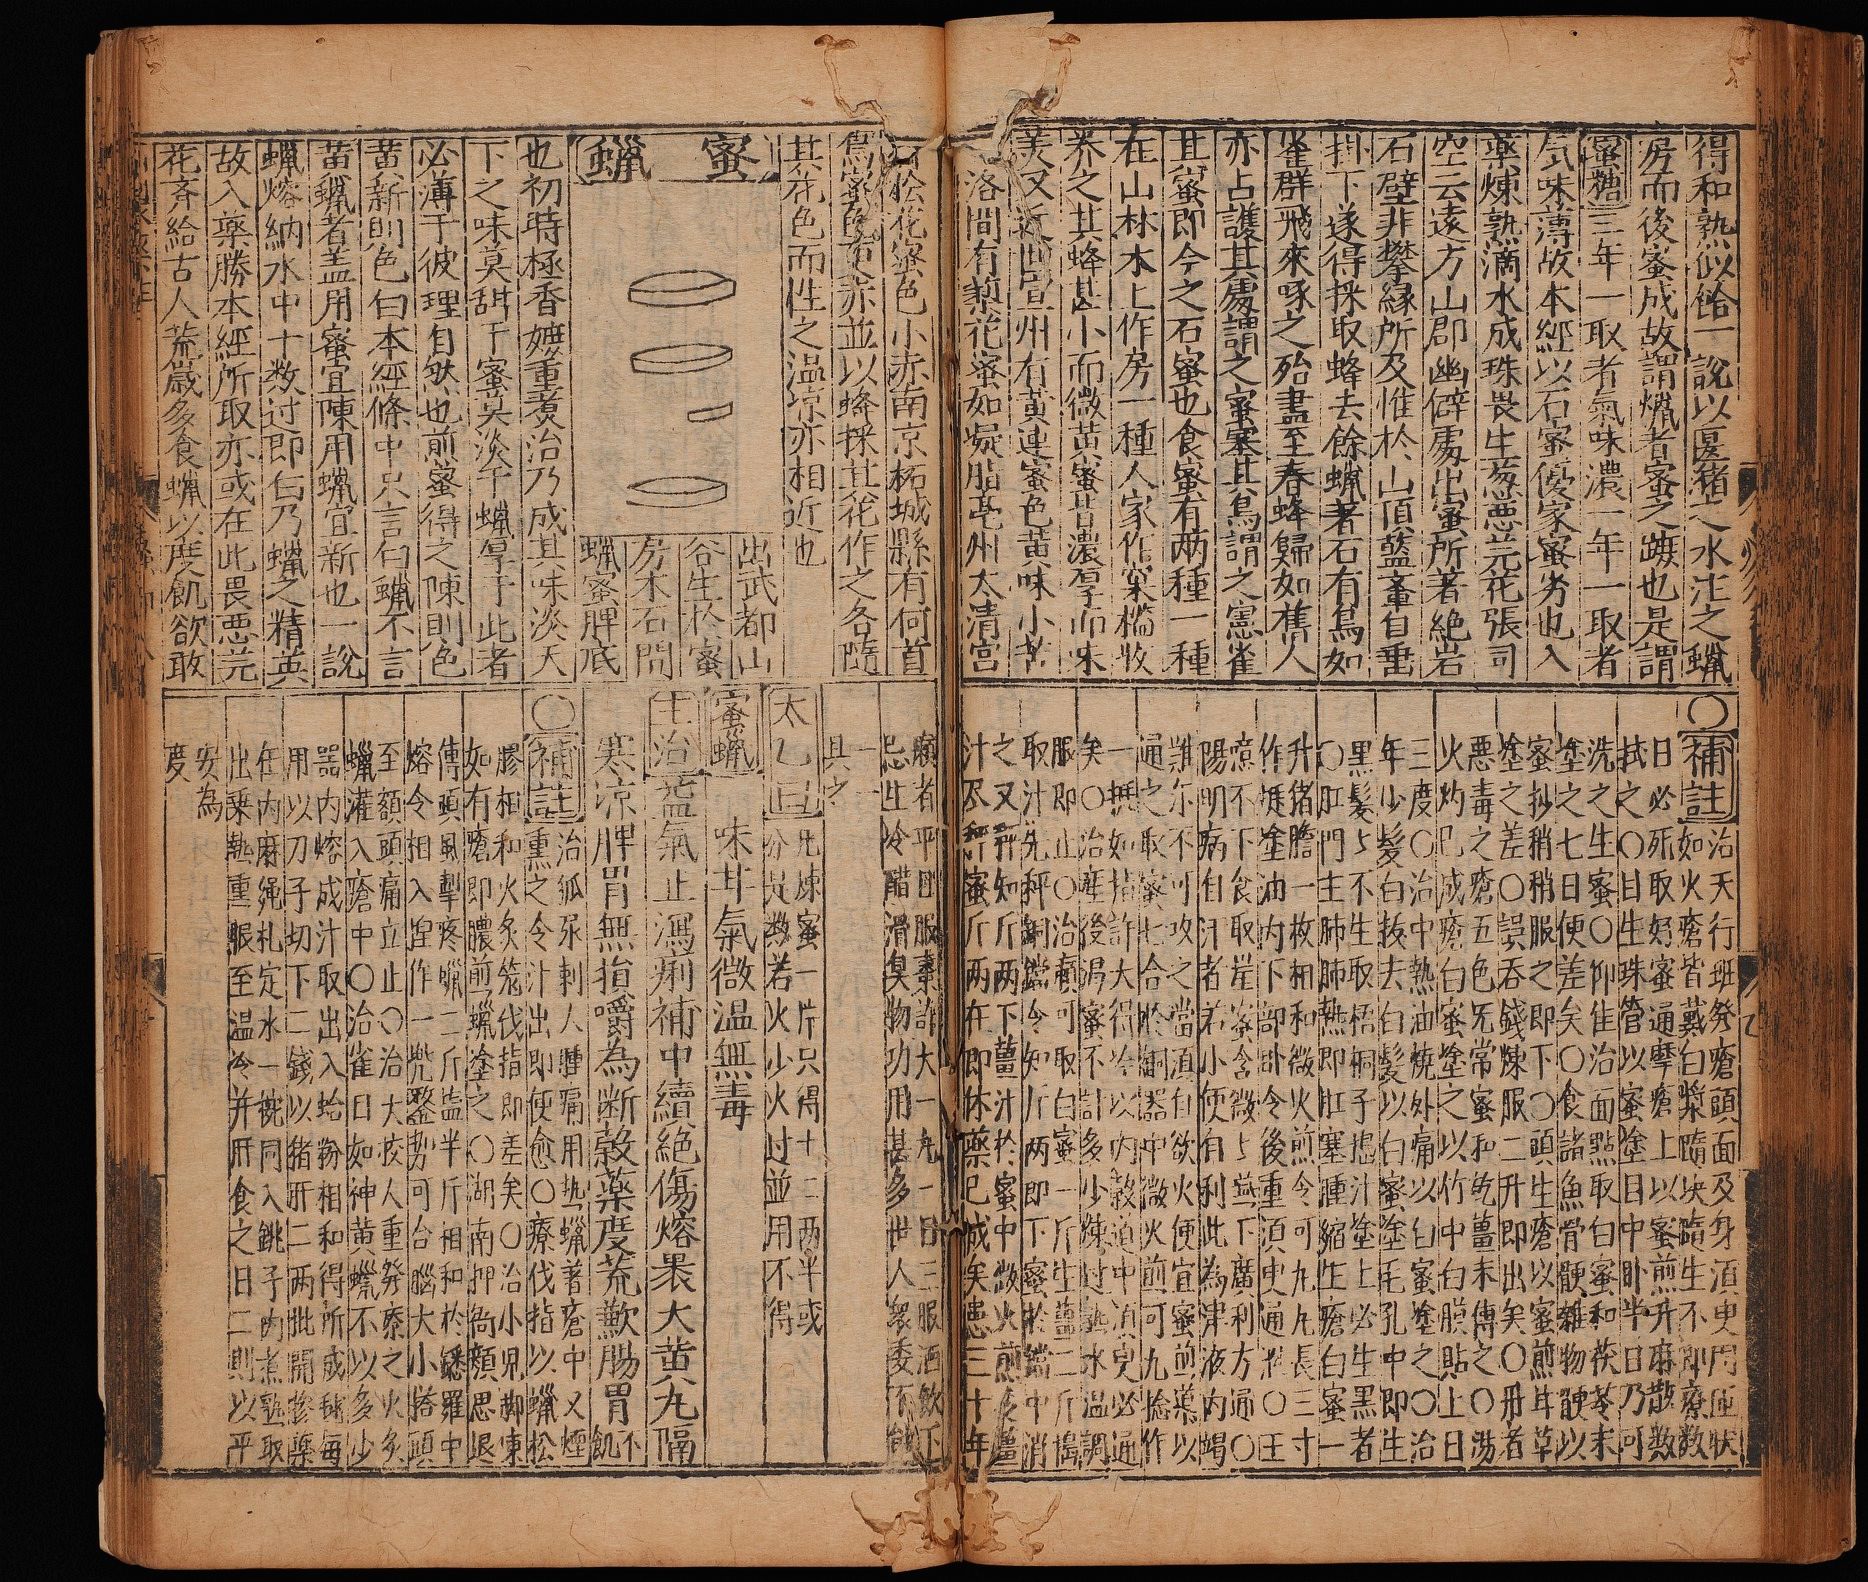 得和熟似餄一說以區猪之水注之蠟
房而後蜜成故謂蠟者蜜之蹠也是謂
蜜糖三年一取者氣味濃一年一取者
氣味薄故本經以石蜜優家蜜劣也入
藥煉熟滴水成珠畏生葱惡芫花張司
空云遠方山郡幽僻處出蜜所著絕岩
石壁非攀緣所及惟於山頂籃轝自垂
掛下遂得採取蜂去餘蠟著石有鳥如
雀群飛來啄之殆盡至春蜂歸如舊人
亦占護其處謂之蜜塞其鳥謂之靈雀
其蜜即今之石蜜也食蜜有两種一種
在山林木上作房一種人家作窠檻收
养之其蜂甚小而微黃蜜皆濃厚而味
美又近世宣州有黃連蜜色黃味小苦
洛間有梨花蜜如凝脂亳州太清宮
○補註治天行班發瘡頭面及身須臾周匝状
如火瘡皆戴白漿隨决隨生不即療数
日必死取好蜜通摩瘡上以蜜煎升麻散数
拭之○目生珠管以蜜塗目中卧半日乃可
洗之生蜜○仰隹治面點取白蜜和茯苓末
塗之七日便差矣○食諸魚骨骾雜物骾以
蜜抄稍稍服之即下○頭生瘡以蜜煎耳草
塗之差○誤吞錢煉服二升即出矣○丹者
惡毒之瘡五色无常蜜和乾薑末傅之○湯
火灼已成瘡白蜜塗之以竹中白膜貼上日
三度○治中熱油燒外痛以白蜜塗之○治
年少髮白拔去白髮以白蜜塗毛孔中即生
黑髮不生取梧桐子搗汁塗上必生黑者
○肛門主肺肺熱即肛塞腫縮生瘡白蜜一
升猪膽一枚相和微火煎令可丸丸長三寸
作挺塗油内下部卧令後重須臾通泄○王
陽明病自汗者若小便自利此為津液内竭
雖尔不可攻之當須自欲火便宜蜜煎導以
通之取蜜七合於銅器中微火煎可丸捻作
一挺如指許大得冷以内穀道中須臾必通
矣○治產後渴蜜不計多少煉过熟水温調
服即止○治癩可取白蜜一斤生薑二斤搗
取汁先秤銅鐺令知斤两即下蜜於鐺中消
之又秤知斤两下薑汁於蜜中微火煎令薑
汁尽秤蜜斤两在即休藥已成矣患三十年
石松花蜜色小赤南京柘城縣有何首
烏蜜色更赤並以蜂採其花作之各隨
其花色而性之温凉亦相近也
蜜蠟
出武都山
谷生於蜜
房木石間
蠟蜜脾底
也初時極香嫩重煮治乃成其味淡天
下之味莫甜于蜜莫淡于蠟厚于此者
必薄于彼理自然也煎蜜得之陳則色
黃新則色白本經條中只言白蠟不言
黃蠟者盖用蜜宜陳用蠟宜新也一說
蠟熔納水中十数过即白乃蠟之精英
故入藥勝本經所取亦或在此畏惡芫
花斉給古人荒歲多食蠟以度飢欲敢
癩者平旦服棗許大一丸一日三服酒飲下
忌生冷醋滑臭物功用甚多世人衆委不能
一一
具之
太乙曰凡煉蜜一斤只得十二两半或
分是数若火少火过並用不得
蜜蠟味甘氣微温無毒
主治益氣止瀉痢補中續絕傷熔裹大黃丸隔
寒凉脾胃無損嚼為断穀藥度荒歉腸胃不
飢
○補註治狐尿刺人腫痛用热蠟著瘡中又煙
熏之令汁出即便愈○療伐指以蠟松
膠相和火炙籠伐指即差矣○治小兒脚凍
如有瘡即膿煎蠟塗之○湖南押衙顏思退
傳頭風掣疼蠟二斤盐半斤相和於鏍羅中
熔令相入捏作一兜鍪勢可合腦大小搭頭
至額頭痛立止○治犬咬人重發療之火炙
蠟灌入瘡中○治雀目如神黃蠟不以多少
器内熔成汁取出入蛤粉相和得所成毬每
用以刀子切下二錢以猪肝二两批開摻藥
在内麻繩札定水一椀同入銚子内煮熟取
出乘熱熏眼至温冷并肝食之日二則以平
安為
度